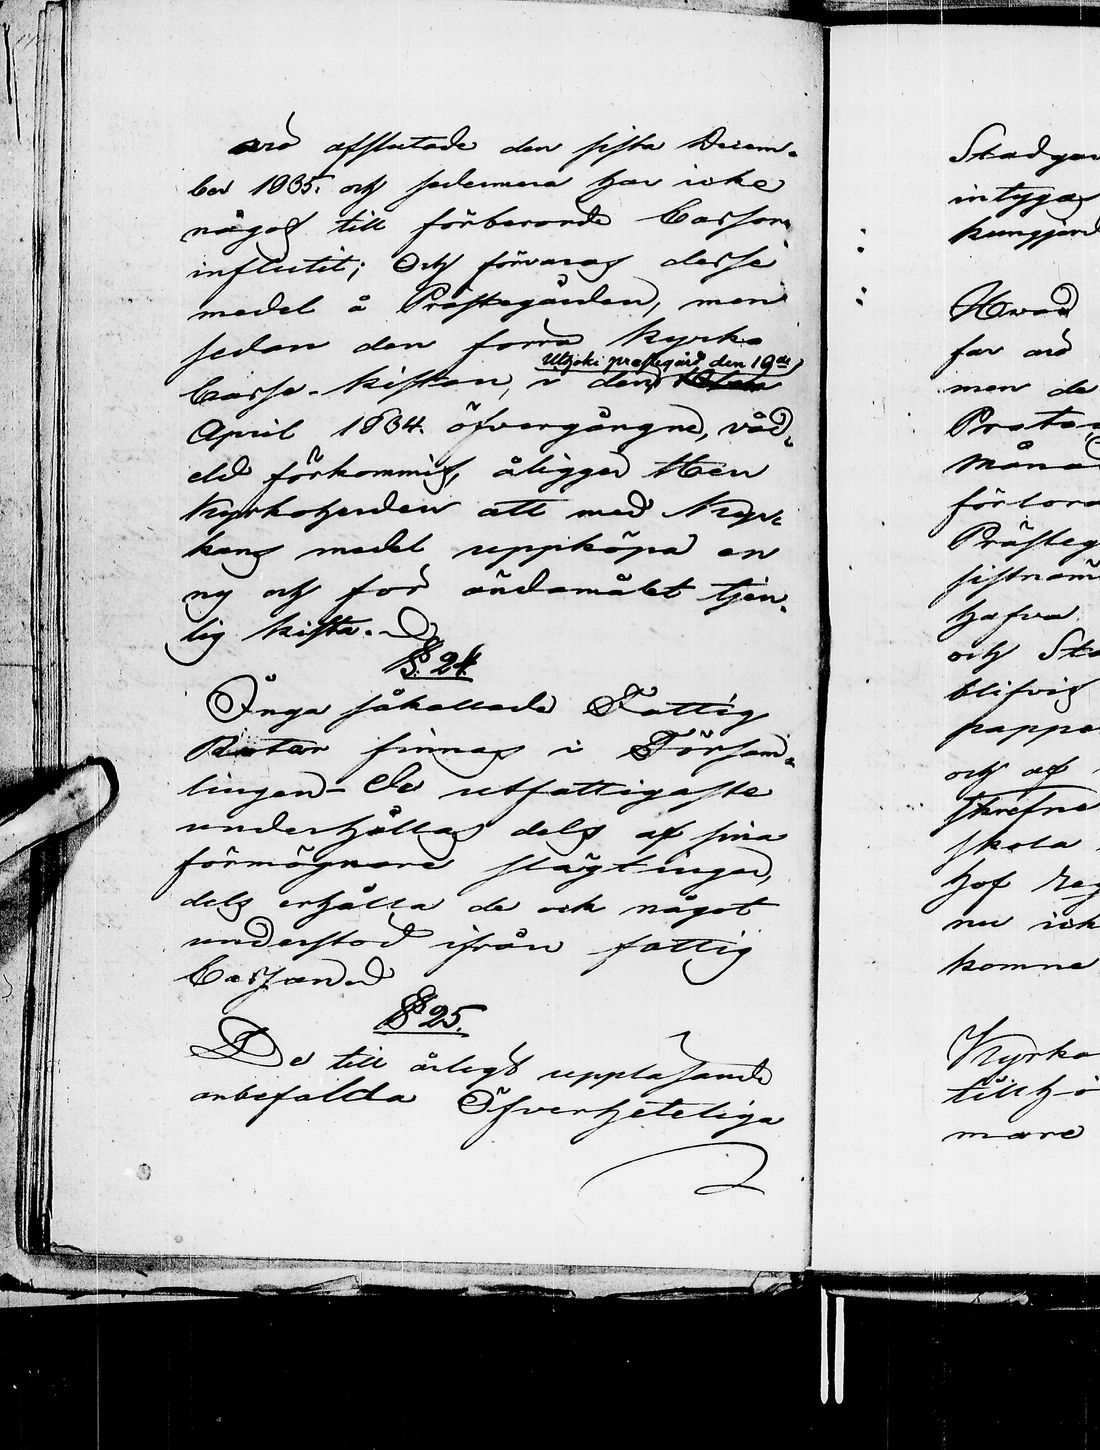 äro afslutade den sista Decem-
ber 1835. och sedermera har icke
något till förberörde Cassor
influtit; Och förvaras desse
medel å Prästegården, men
sedan den förra Kyrko
Utsjoki prästegård den 19de
Casse-kistan, i den
April 1834. öfvergångne, våd-
eld förkommit, åligger Herr
Kyrkoherden att med Kyr-
kans medel uppköpa en
ny och för ändamålet tjen-
lig kista.
§. 24.
Inga såkallade Fattig
Rotar finnas i Försam-
lingen - De utfattigaste
underhållas dels af sina
förmögnare slägtingar,
dels erhålla de ock något
understöd ifrån fattig
Cassan
§ 25.
De till årligt uppläsande
anbefalda Öfverheteliga
Stadgar
intygas
kungjord
Hwad
far
men de
Proto
Månad
förlora
Prästeg
sistnäm
hafva
och Sta
blifvit
pappe
och af
skrefne
skola
hof
nu ick
komne
Kyrko
tillhö
mare